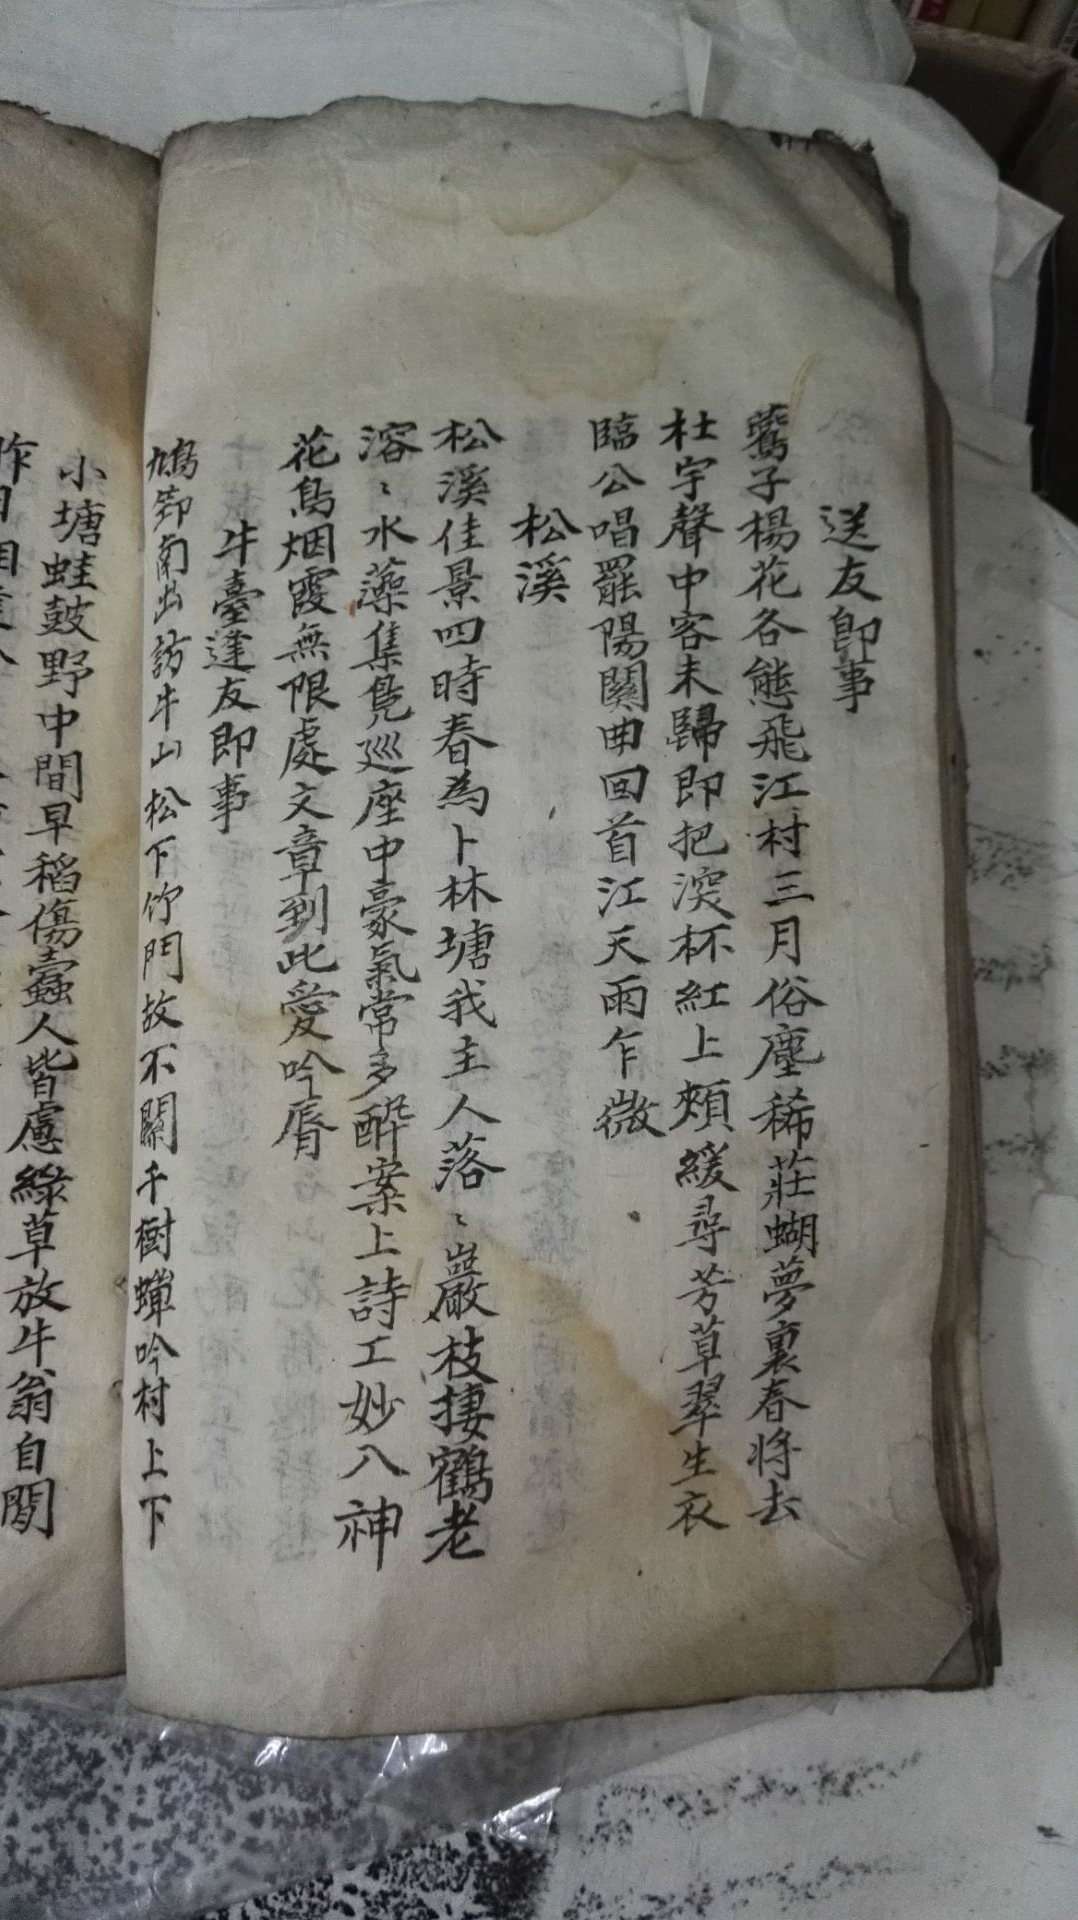 送友即事
鶯子楊花各態飛江村三月俗塵稀莊蝴夢裏春將去
杜宇聲中客未歸即把深杯紅上頰緩尋芳草翠生衣
臨公唱罷陽關曲回首江天雨乍微
松溪
松溪佳景四時春為卜林塘我主人落〻巖枝捿鶴老
溶〻水藻集鳧巡座中豪氣常多醉案上詩工妙入神
花鳥烟霞無限處文章到此愛吟唇
牛臺逢友即事
鳩鄉南出訪牛山松下竹門故不關千樹蟬吟村上下
小塘蛙鼓野中間早稻傷蠹人皆慮綠草放牛翁自閒
昨日相逢